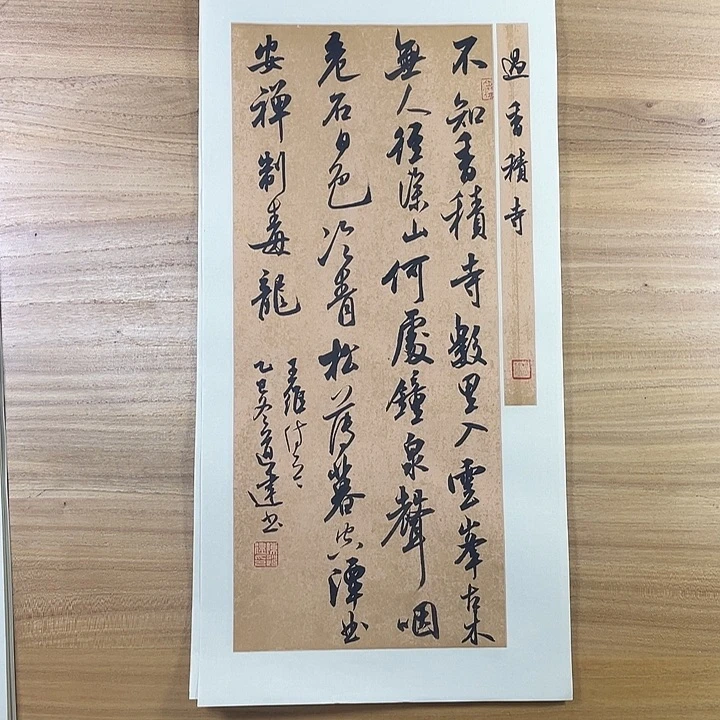 過香積寺
不知香積寺數里入雲峯古木
無人徑深山何處鐘泉聲咽
危石日色冷青松薄暮空潭曲
安禪制毒龍
王維诗
乙巳冬道達书